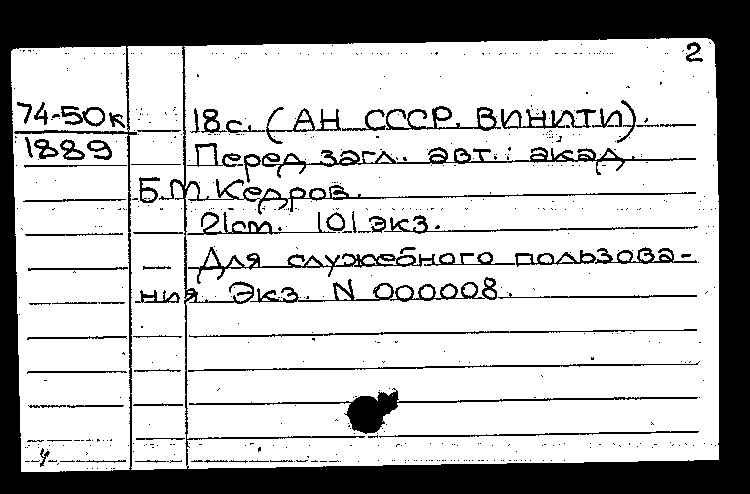 2
74-50к 18с. (АН СССР. ВИНИТИ).
1889 Перед загл. авт.: акад.
Б.М. Кедров.
21cm. 101 экз.
— Для служебного пользова-
ния Экз. N 000008.